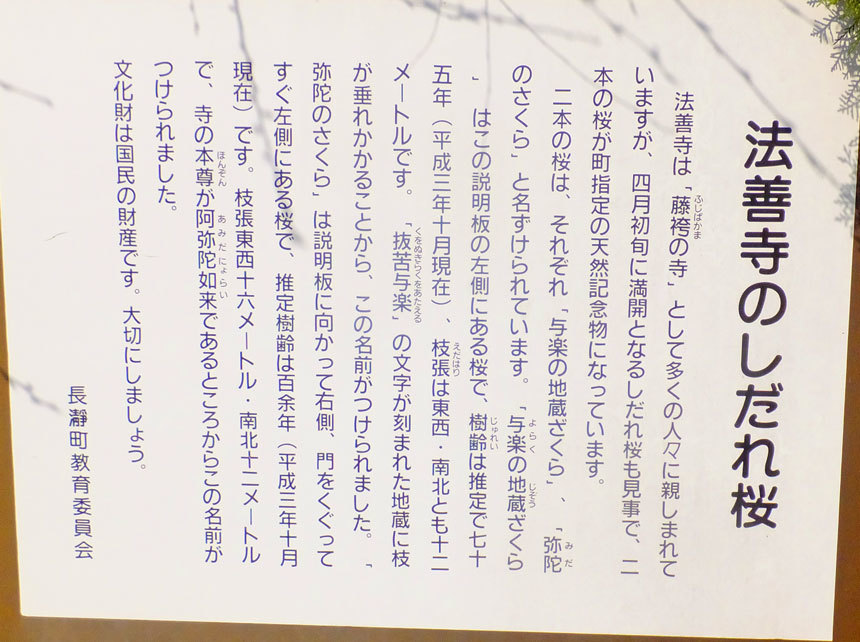 法善寺のしだれ桜
法善寺は「藤袴の寺」として多くの人々に親しまれて
いますが、四月初旬に満開となるしだれ桜も見事で、二
本の桜が町指定の天然記念物になっています。
二本の桜は、それぞれ「与楽の地蔵ざくら」、「弥陀
のさくら」と名ずけられています。「与楽の地蔵ざくら
」はこの説明板の左側にある桜で、樹齢は推定で七十
五年（平成三年十月現在）、枝張は東西・南北とも十二
メートルです。「抜苦与楽」の文字が刻まれた地蔵に枝
が垂れかかることから、この名前がつけられました。「
弥陀のさくら」は説明板に向かって右側、門をくぐって
すぐ左側にある桜で、推定樹齢は百余年（平成三年十月
現在）です。枝張東西十六メートル・南北十二メートル
で、寺の本尊が阿弥陀如来であるところからこの名前が
つけられました。
文化財は国民の財産です。大切にしましょう。
長瀞町教育委員会
ふじばかま
みだ
よらく
じぞう
じゅれい
えだはり
くをぬきらくをあたえる
ほんぞん
あみだにょらい